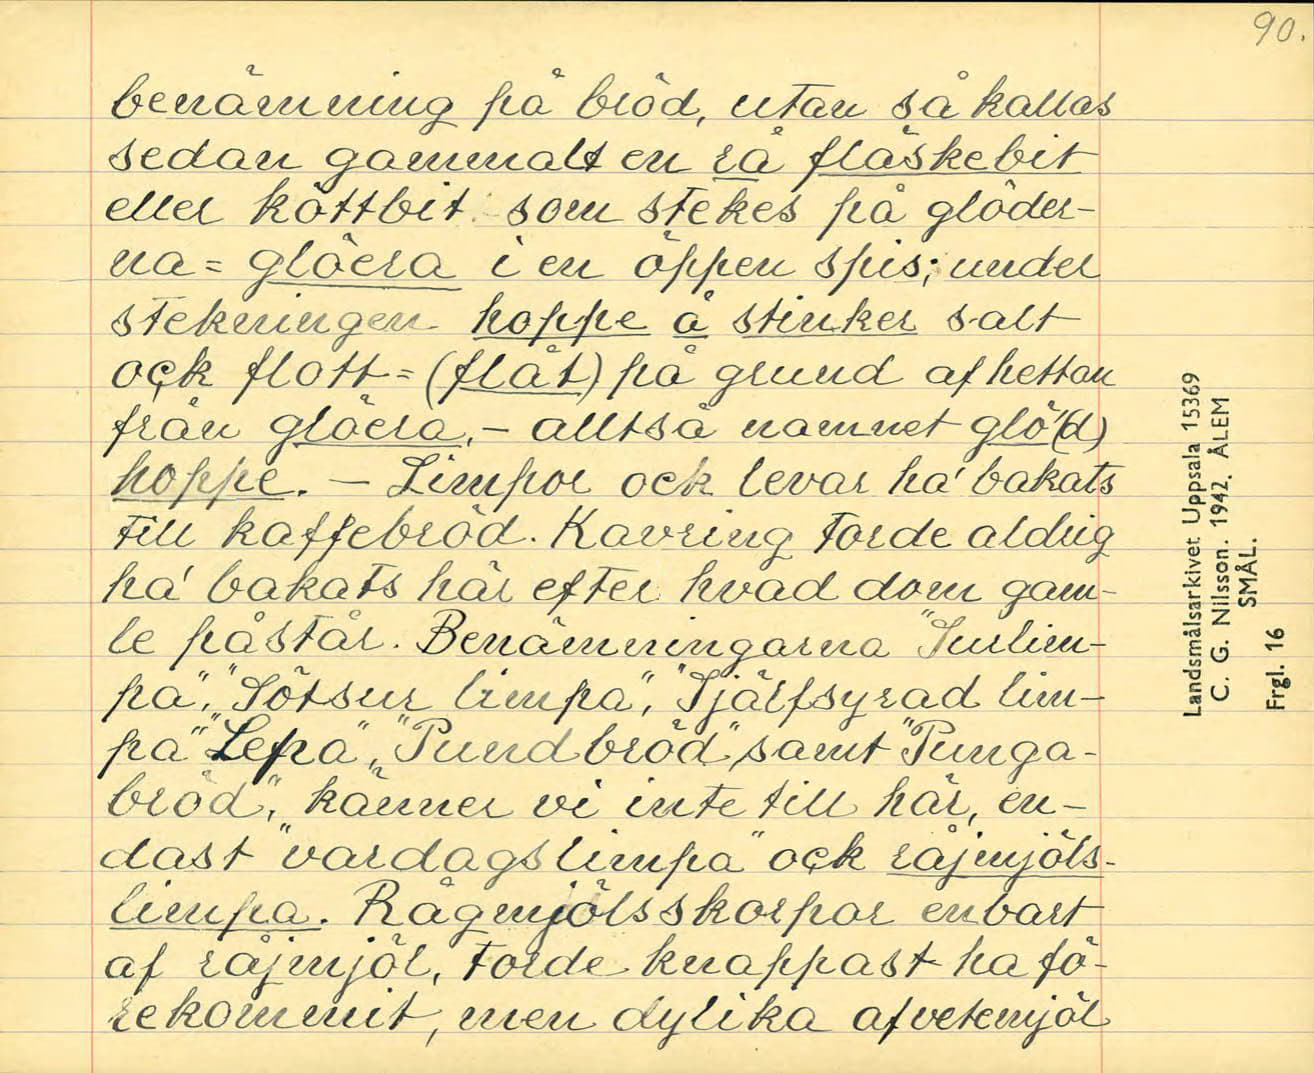 90.
benämning på bröd, utan så kallas
sedan gammalt en rå fläskebit
eller köttbit som stekes på glöder-
na = glöera i en öppen spis; under
stekningen hoppe å stinker salt
ock flott = (flåt) på grund af hettan
från glöera, - alltså namnet glö"(d)
hoppe. - Limpor ock levar ha' bakats
till kaffebröd. Kavring torde aldrig
ha' bakats här efter hvad dom gam-
le påstår. Benämningarna "Surlim-
pa", "Sötsur limpa", "Själfsyrad lim-
pa" "Lepa", "Pundbröd", samt "Punga-
bröd", känner vi inte till här, en-
dast "vardagslimpa" ock råjmjöls-
limpa. Rågmjölsskorpor enbart
af råjmjöl, torde knappast ha fö-
rekommit, men dylika af vetemjöl
Landsmålsarkivet Uppsala 15369
C. G. Nilsson. 1942. ÅLEM
SMÅL.
Frgl. 16